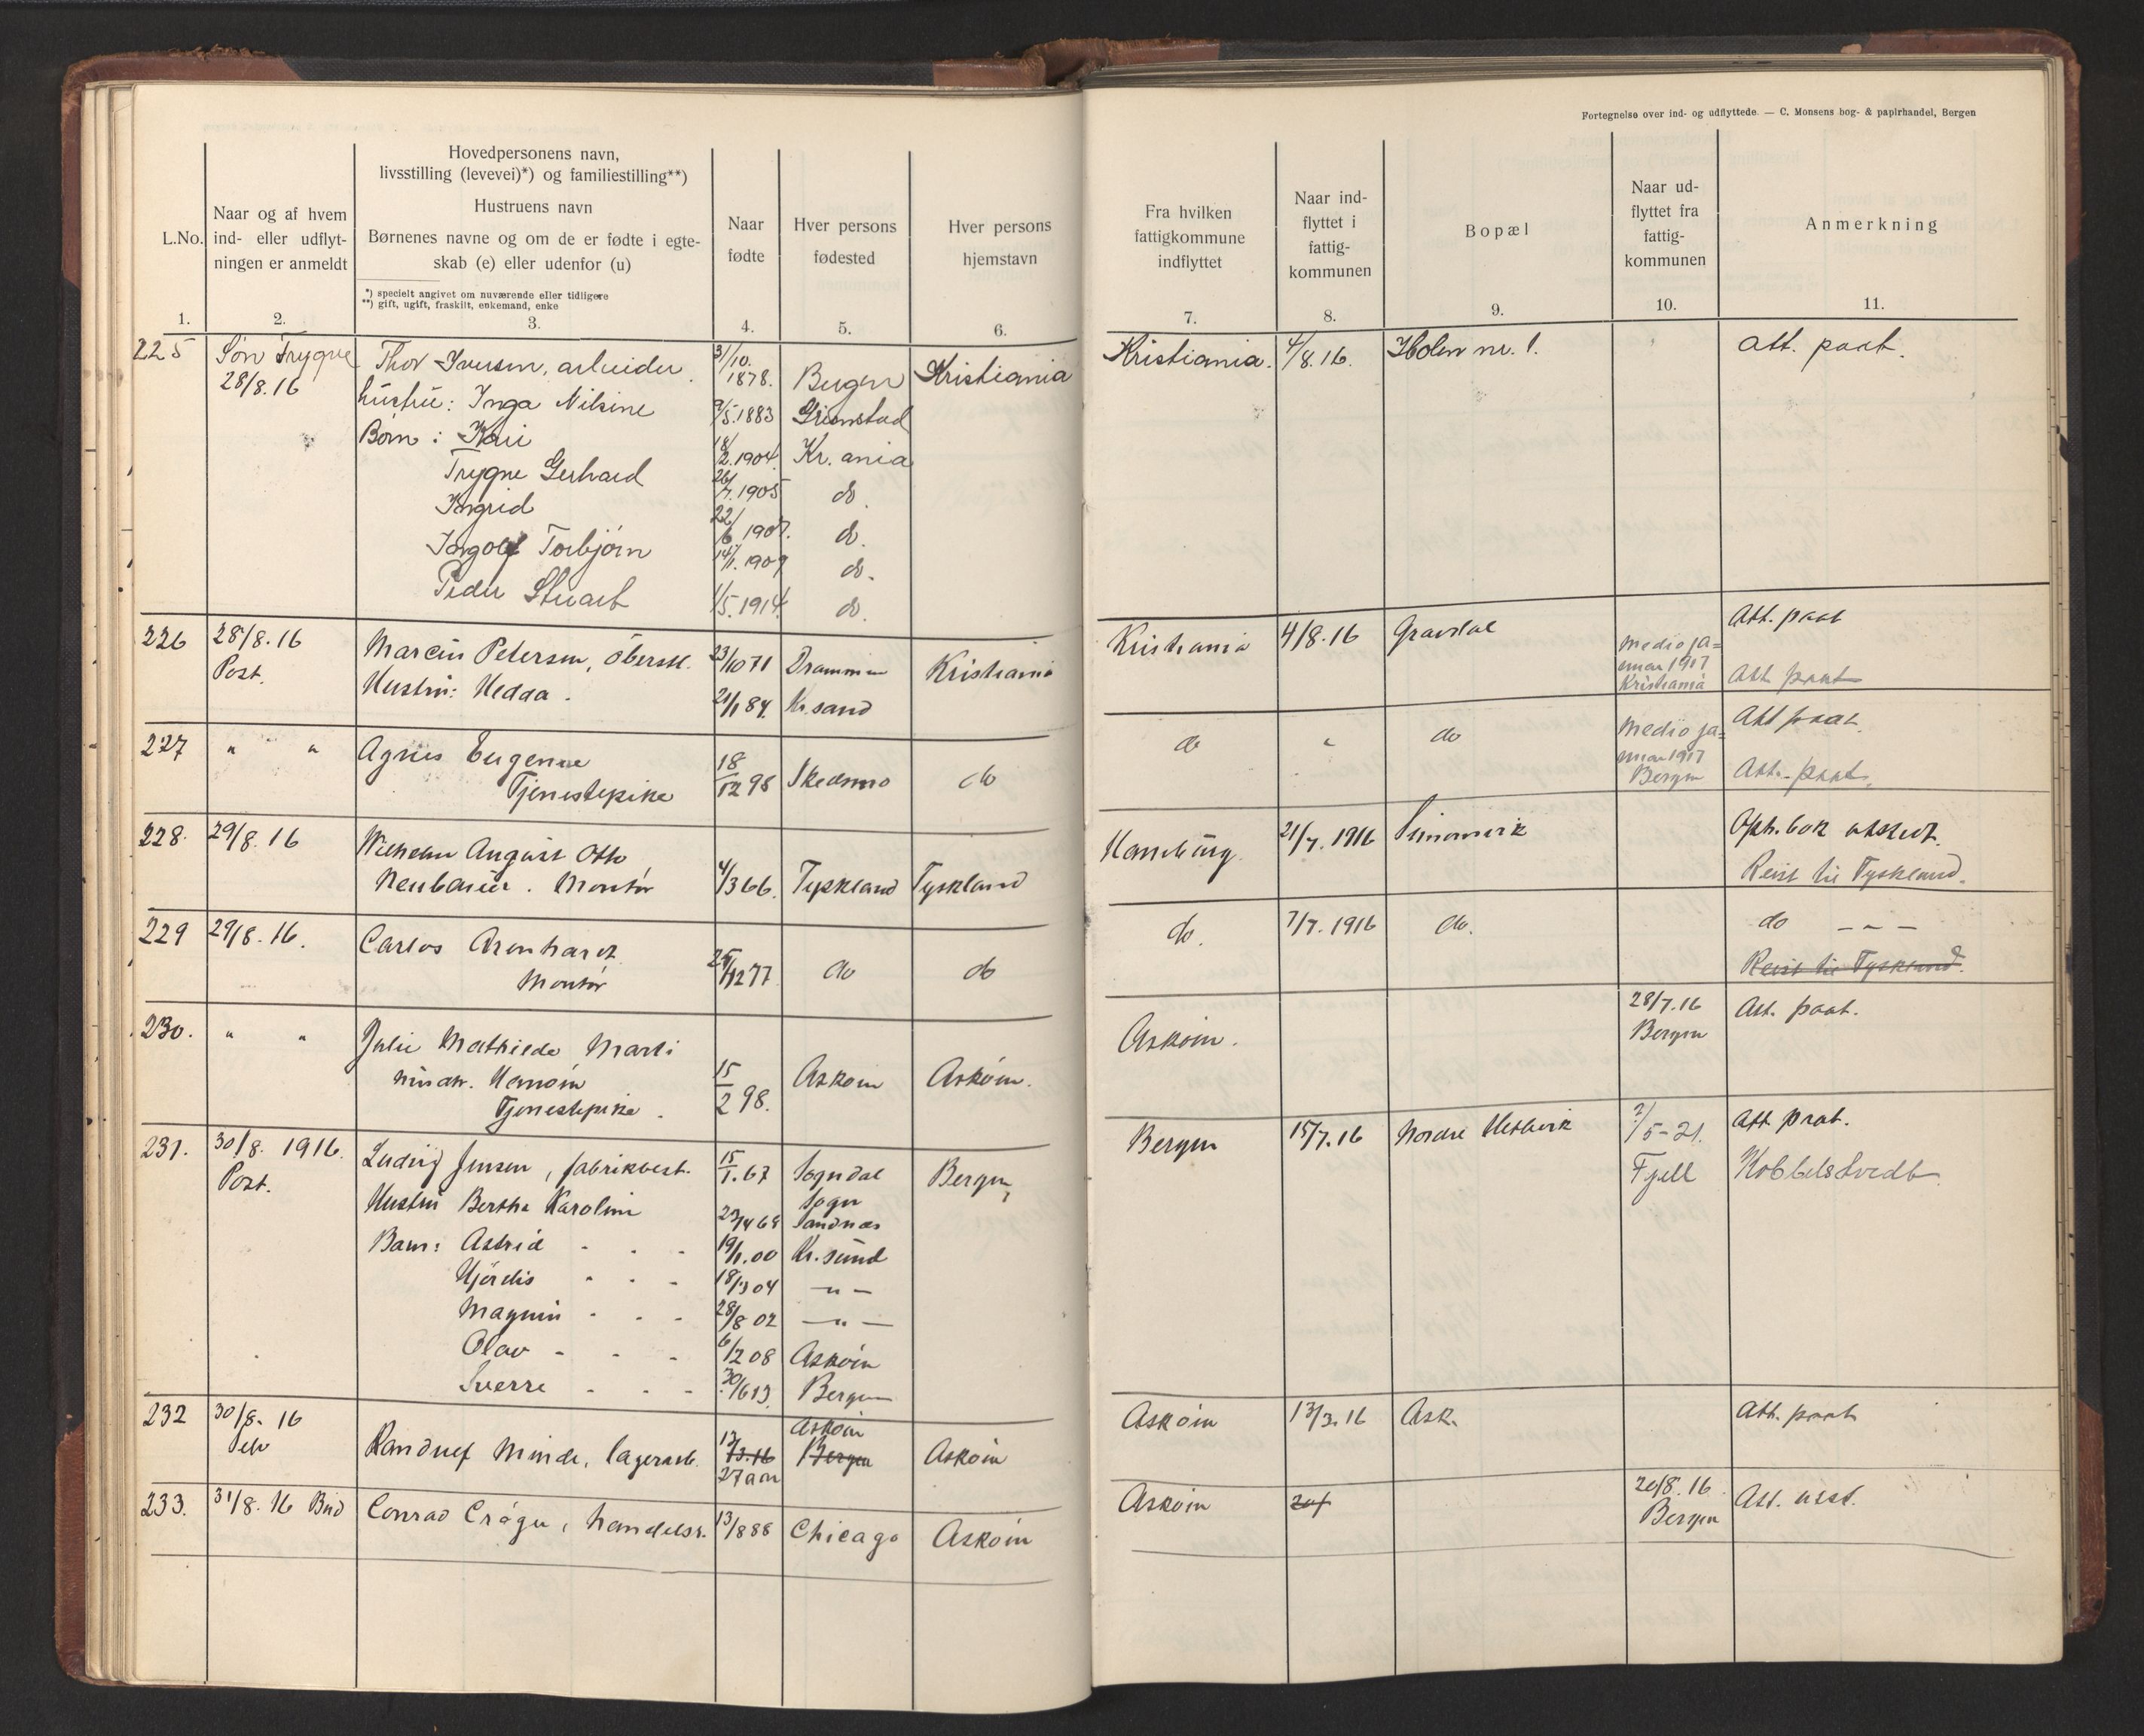 Fortegnelse over ind- og udflyttede. — C. Monsens bog- & papirhandel, Bergen
L.No.
Naar og af hvem
ind- eller udflyt-
ningen er anmeldt
Hovedpersonens navn,
livsstilling (levevei)*) og familiestilling**)
Hustruens navn
Børnenes navne og om de er fødte i egte-
skab (e) eller udenfor (u)
*) specielt angivet om nuværende eller tidligere
**) gift, ugift, fraskilt, enkemand, enke
Naar
fødte
Hver persons
fødested
Hver persons
hjemstavn
Fra hvilken
fattigkommune
indflyttet
Naar ind-
flyttet i
fattig-
kommunen
Bopæl
Naar ud-
flyttet fra
fattig-
kommunen
Anmerkning
1. 2. 3. 4. 5. 6. 7. 8. 9. 10. 11.
225 Søn Trygve Thor Iversen, arbeider. 31/10. 1878. Bergen Kristiania Kristiania. 4/8.16. Holen nr. 1. att. paat.
28/8.16
Hustru: Inga Nilsine 9/5.1883 Grimstad
Børn: Kari 18/2.1904. Kr.ania
Trygve Gerhard 26/7.1905 do.
Ingrid 22/6 1907. do.
Ingolf Torbjørn 14/1.1909 do.
Peder Stuart 1/5.1914. do.
226 28/8.16 Marcin Petersen, 23/10 71 Drammen Kristiania Kristiania 4/8.16 Gravdal Medio ja= Att. paat
Post. nuar 1917
Hustru: Hedda. 21/1 84. Kr.sand Kristiania Att paat
227 " " Agnes Eugenie 18/12 98 Skedsmo do do " do Medio ja= Att paat.
Tjenestepike nuar 1917
Bergen Att. paat.
228. 29/8.16 Wilhelm August Otto Hamburg. 21/7. 1916 Simonsvik Oph. bok utstedt.
Neubauer. Montør 4/3 66. Tyskland Tyskland Reist til Tyskland.
229 29/8.16. Carlos Arenhardt do. 7/7.1916 do. do — " —
Montør 25/12 77 do do Reist til Tyskland.
230. " " Julie Mathilde Marti Askøin. 28/7.16 Att. paat.
Bergen
minatr. Hanøin 15/2 98. Askøin Askøin.
Tjenestepike.
231. 30/8. 1916. Ludvig Jensen, fabrikbest. 15/1.67 Sogndal Bergen, Bergen 15/7.16 Nordre Hetlevik 2/5-21. Att. paat.
Post. Sogn Fjell Kobbeltvedt
Hustru Bertha Karoline Sandnæs
Barn: Astrid 19/1.00 Kr.sund
Hjørdis 18/3 04 — " —
Magnus 28/8 02 — " —
Olav 6/12 08 Askøin
Sverre 30/6 13. Bergen
232 30/8. 16 Askøin Askøin 13/3.16 Ask. Att. paat
Selv Randulf Minde, lagerarb. 13/3.16 Bergen Askøin
27 aar
233. 31/8.16 Bud Conrad Crøger, handelsr. 13/8 88 Chicago Askøin Askøin 20/8.16. Att. utst.
Bergen